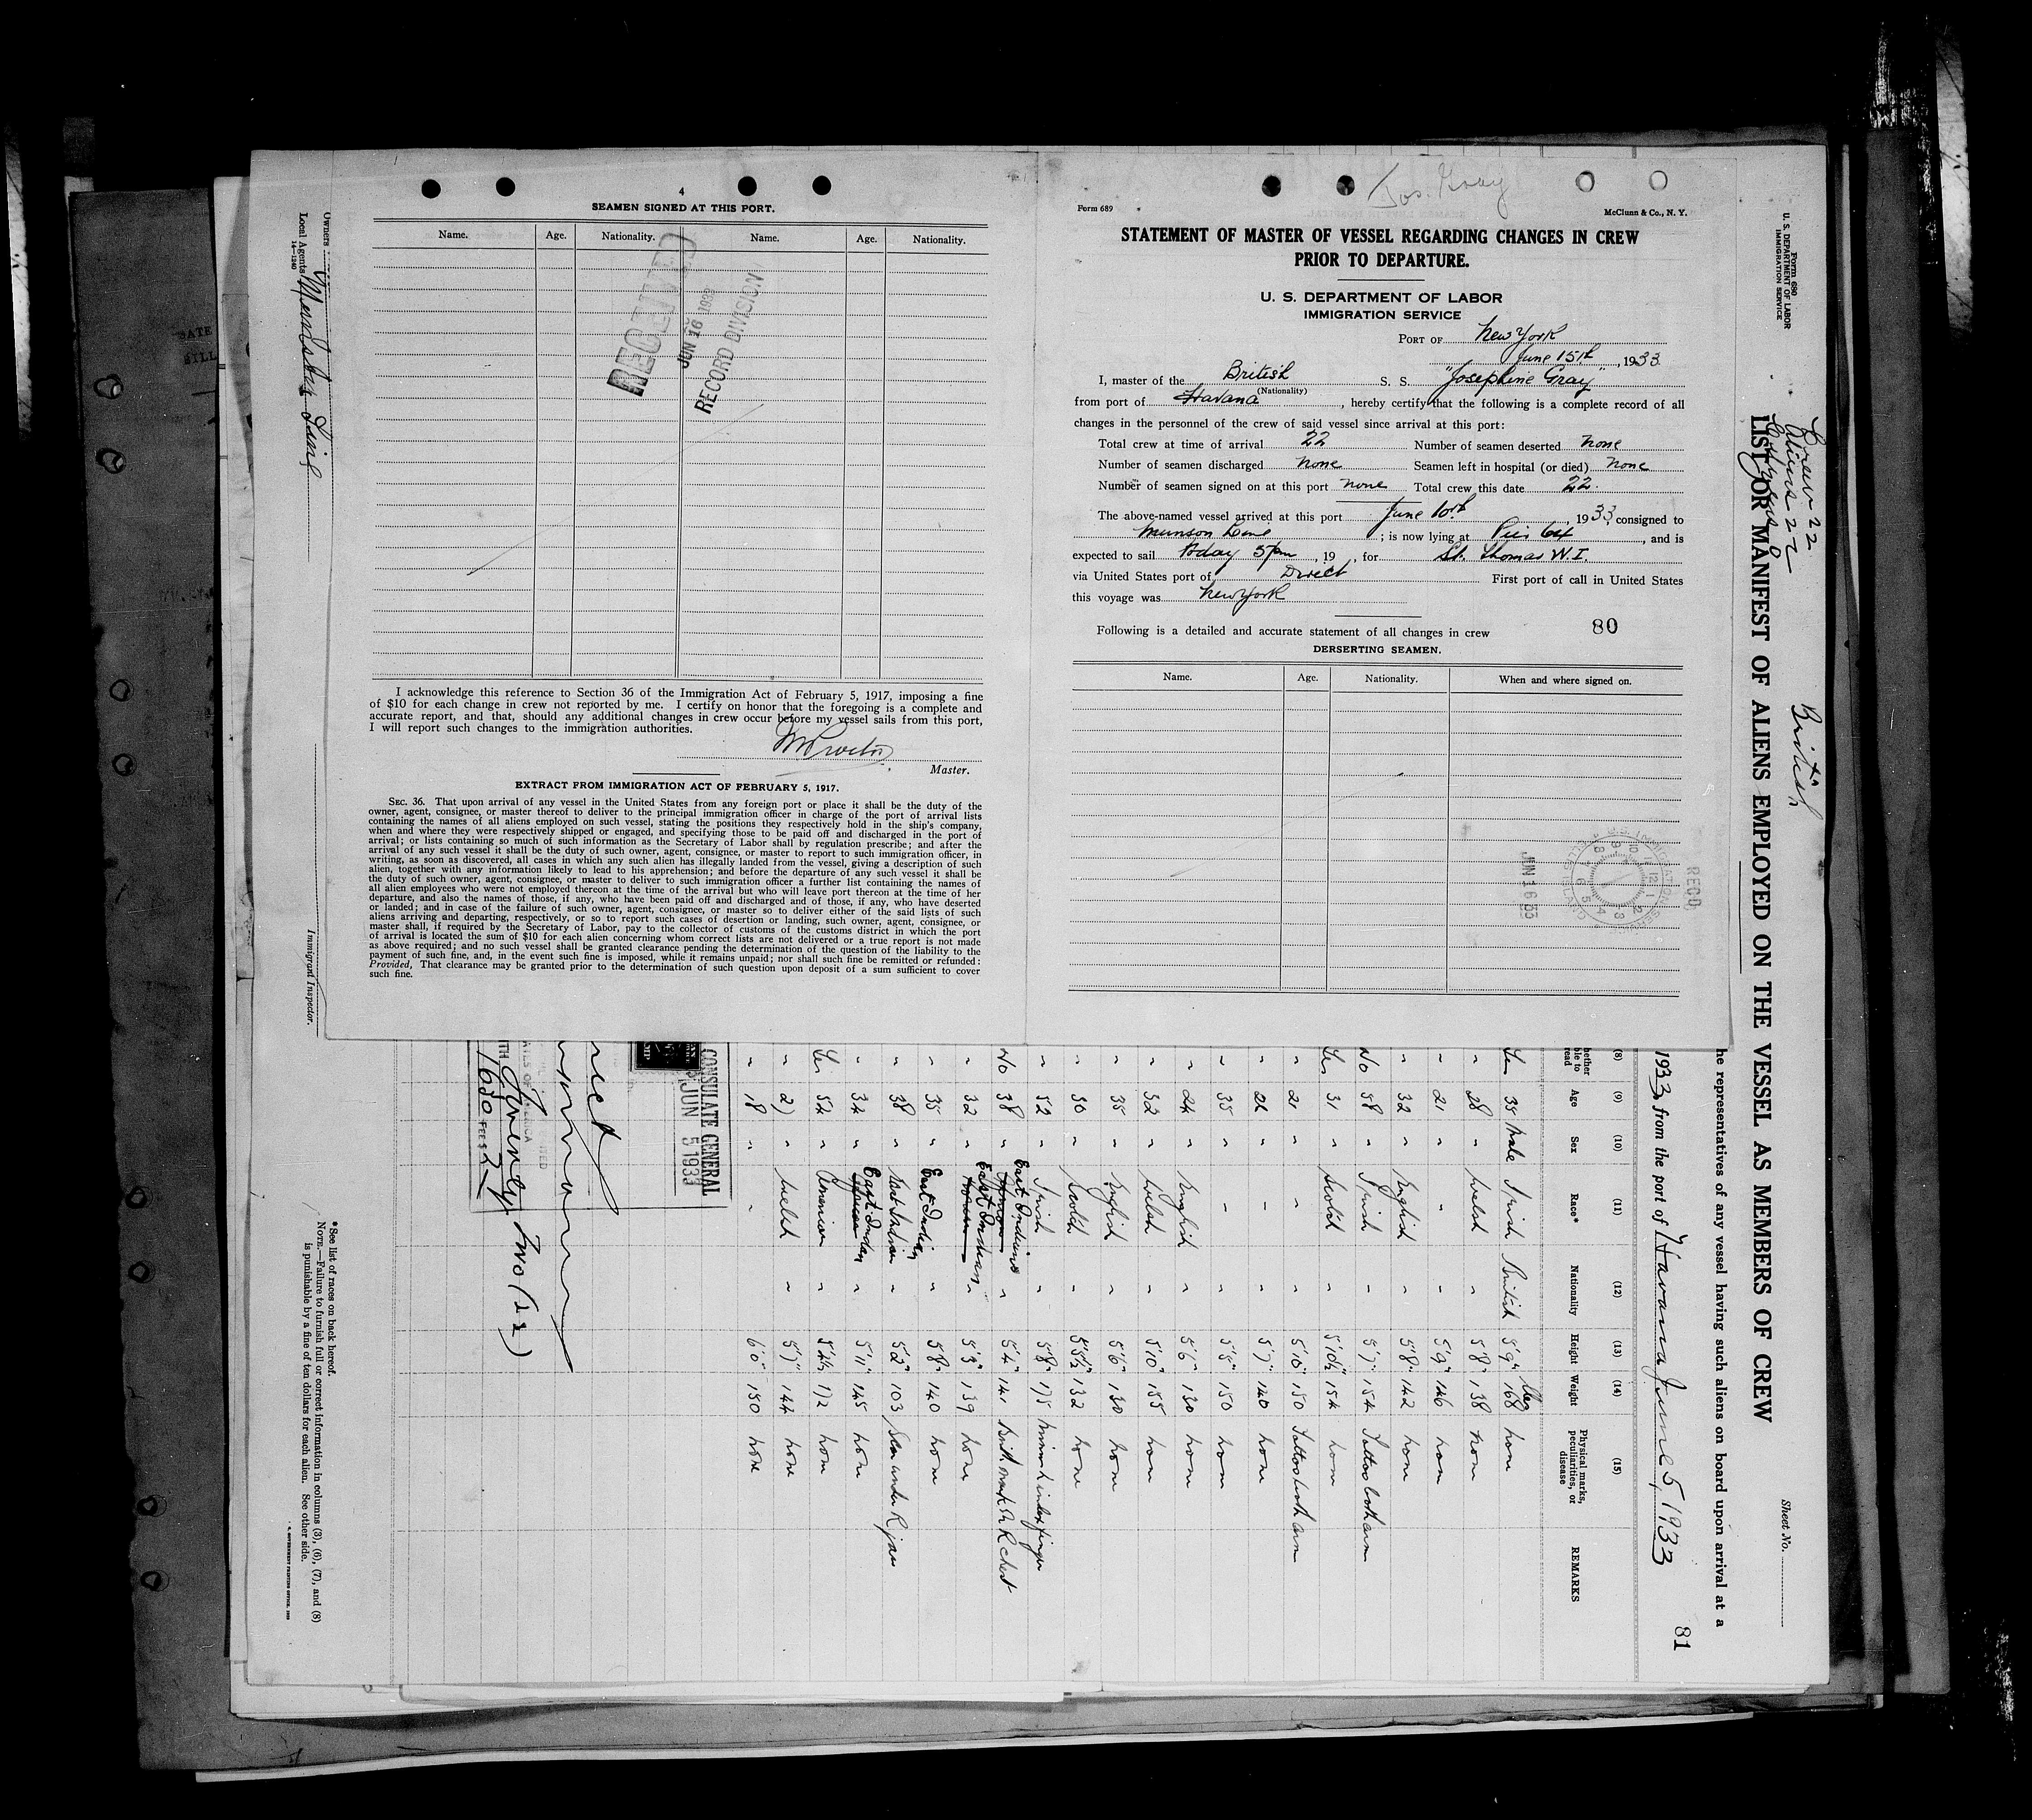 4
SEAMEN SIGNED AT THIS PORT.
Name. Age. Nationality. Name. Age. Nationality.
RECEIVED
JUN 16 1933
RECORD DIVISION
I acknowledge this reference to Section 36 of the Immigration Act of February 5, 1917, imposing a fine
of $10 for each change in crew not reported by me. I certify on honor that the foregoing is a complete and
accurate report, and that, should any additional changes in crew occur before my vessel sails from this port,
I will report such changes to the immigration authorities.
Master.
EXTRACT FROM IMMIGRATION ACT OF FEBRUARY 5, 1917.
SEC. 36. That upon arrival of any vessel in the United States from any foreign port or place it shall be the duty of the
owner, agent, consignee, or master thereof to deliver to the principal immigration officer in charge of the port of arrival lists
containing the names of all aliens employed on such vessel, stating the positions they respectively hold in the ship's company,
when and where they were respectively shipped or engaged, and specifying those to be paid off and discharged in the port of
arrival; or lists containing so much of such information as the Secretary of Labor shall by regulation prescribe; and after the
arrival of any such vessel it shall be the duty of such owner, agent, consignee, or master to report to such immigration officer, in
writing, as soon as discovered, all cases in which any such alien has illegally landed from the vessel, giving a description of such
alien, together with any information likely to lead to his apprehension; and before the departure of any such vessel it shall be
the duty of such owner, agent, consignee, or master to deliver to such immigration officer a further list containing the names of
all alien employees who were not employed thereon at the time of the arrival but who will leave port thereon at the time of her
departure, and also the names of those, if any, who have been paid off and discharged and of those, if any, who have deserted
or landed; and in case of the failure of such owner, agent, consignee, or master so to deliver either of the said lists of such
aliens arriving and departing, respectively, or so to report such cases of desertion or landing, such owner, agent, consignee, or
master shall, if required by the Secretary of Labor, pay to the collector of customs of the customs district in which the port
of arrival is located the sum of $10 for each alien concerning whom correct lists are not delivered or a true report is not made
as above required; and no such vessel shall be granted clearance pending the determination of the question of the liability to the
payment of such fine, and, in the event such fine is imposed, while it remains unpaid; nor shall such fine be remitted or refunded:
Provided, That clearance may be granted prior to the determination of such question upon deposit of a sum sufficient to cover
such fine.
Jos. Gray
Form 689
McClunn & Co., N. Y.
STATEMENT OF MASTER OF VESSEL REGARDING CHANGES IN CREW
PRIOR TO DEPARTURE.
U. S. DEPARTMENT OF LABOR
IMMIGRATION SERVICE
PORT OF New York
June 15th, 1933
I, master of the British S. S. "Josephine Gray"
(Nationality)
from port of Havana, hereby certify that the following is a complete record of all
changes in the personnel of the crew of said vessel since arrival at this port:
Total crew at time of arrival 22 Number of seamen deserted none
Number of seamen discharged none Seamen left in hospital (or died) none
Number of seamen signed on at this port none Total crew this date 22.
The above-named vessel arrived at this port June 10th, 1933, consigned to
Munson Line; is now lying at Pier 64, and is
expected to sail today 5pm, 19, for St. Thomas W.I.
via United States port of Direct First port of call in United States
this voyage was New York
Following is a detailed and accurate statement of all changes in crew 80
DERSERTING SEAMEN.
Name. Age. Nationality. When and where signed on.
JUN 16 33
RECD
Form 680
U. S. DEPARTMENT OF LABOR
IMMIGRATION SERVICE
Crew 22
Aliens 22
British
Sheet No.
LIST OR MANIFEST OF ALIENS EMPLOYED ON THE VESSEL AS MEMBERS OF CREW
he representatives of any vessel having such aliens on board upon arrival at a
1933, from the port of Havana June 5, 1933
81
(8) (9) (10) (11) (12) (13) (14) (15)
Age Sex Race* Nationality Height Weight Physical marks, peculiarities, or disease REMARKS
Yes 35 Male Irish British 5'9" 168 none
" 28 " Welsh " 5'8" 138 none
" 21 " " " 5'9" 146 none
" 32 " English " 5'8" 142 none
No 58 " Irish " 5'7" 154 Tattoo both arm
Yes 31 " Scotch " 5'10½ 154 none
" 21 " " " 5'10" 150 Tattoo both arm
" 22 " " " 5'7" 140 none
" 35 " " " 5'5" 150 none
" 24 " English " 5'6" 130 none
" 32 " Welsh " 5'10" 155 none
" 35 " English " 5'6" 130 none
" 50 " Scotch " 5'5½" 132 none
" 52 " Irish " 5'8" 175 index finger
No 38 " East Indian " 5'4" 141 Birth mark on R chest
" 32 " East Indian " 5'3" 139 none
" 35 " East Indian " 5'8" 140 none
" 38 " East Indian " 5'2" 103 Scar under R jaw
" 34 " East Indian " 5'11" 145 none
Yes 54 " " 5'4½ 172 none
" 27 " Welsh " 5'7" 144 none
" 18 " " 6'0" 180 none
CONSULATE GENERAL
JUN 5 1933
Twenty Two (22)
1650 FEE $ 2
*See list of races on back hereof.
NOTE.—Failure to furnish full or correct information in columns (3), (6), (7), and (8)
is punishable by a fine of ten dollars for each alien. See other side.
Immigrant Inspector.
Owners
Local Agents Munson Line
14—1240